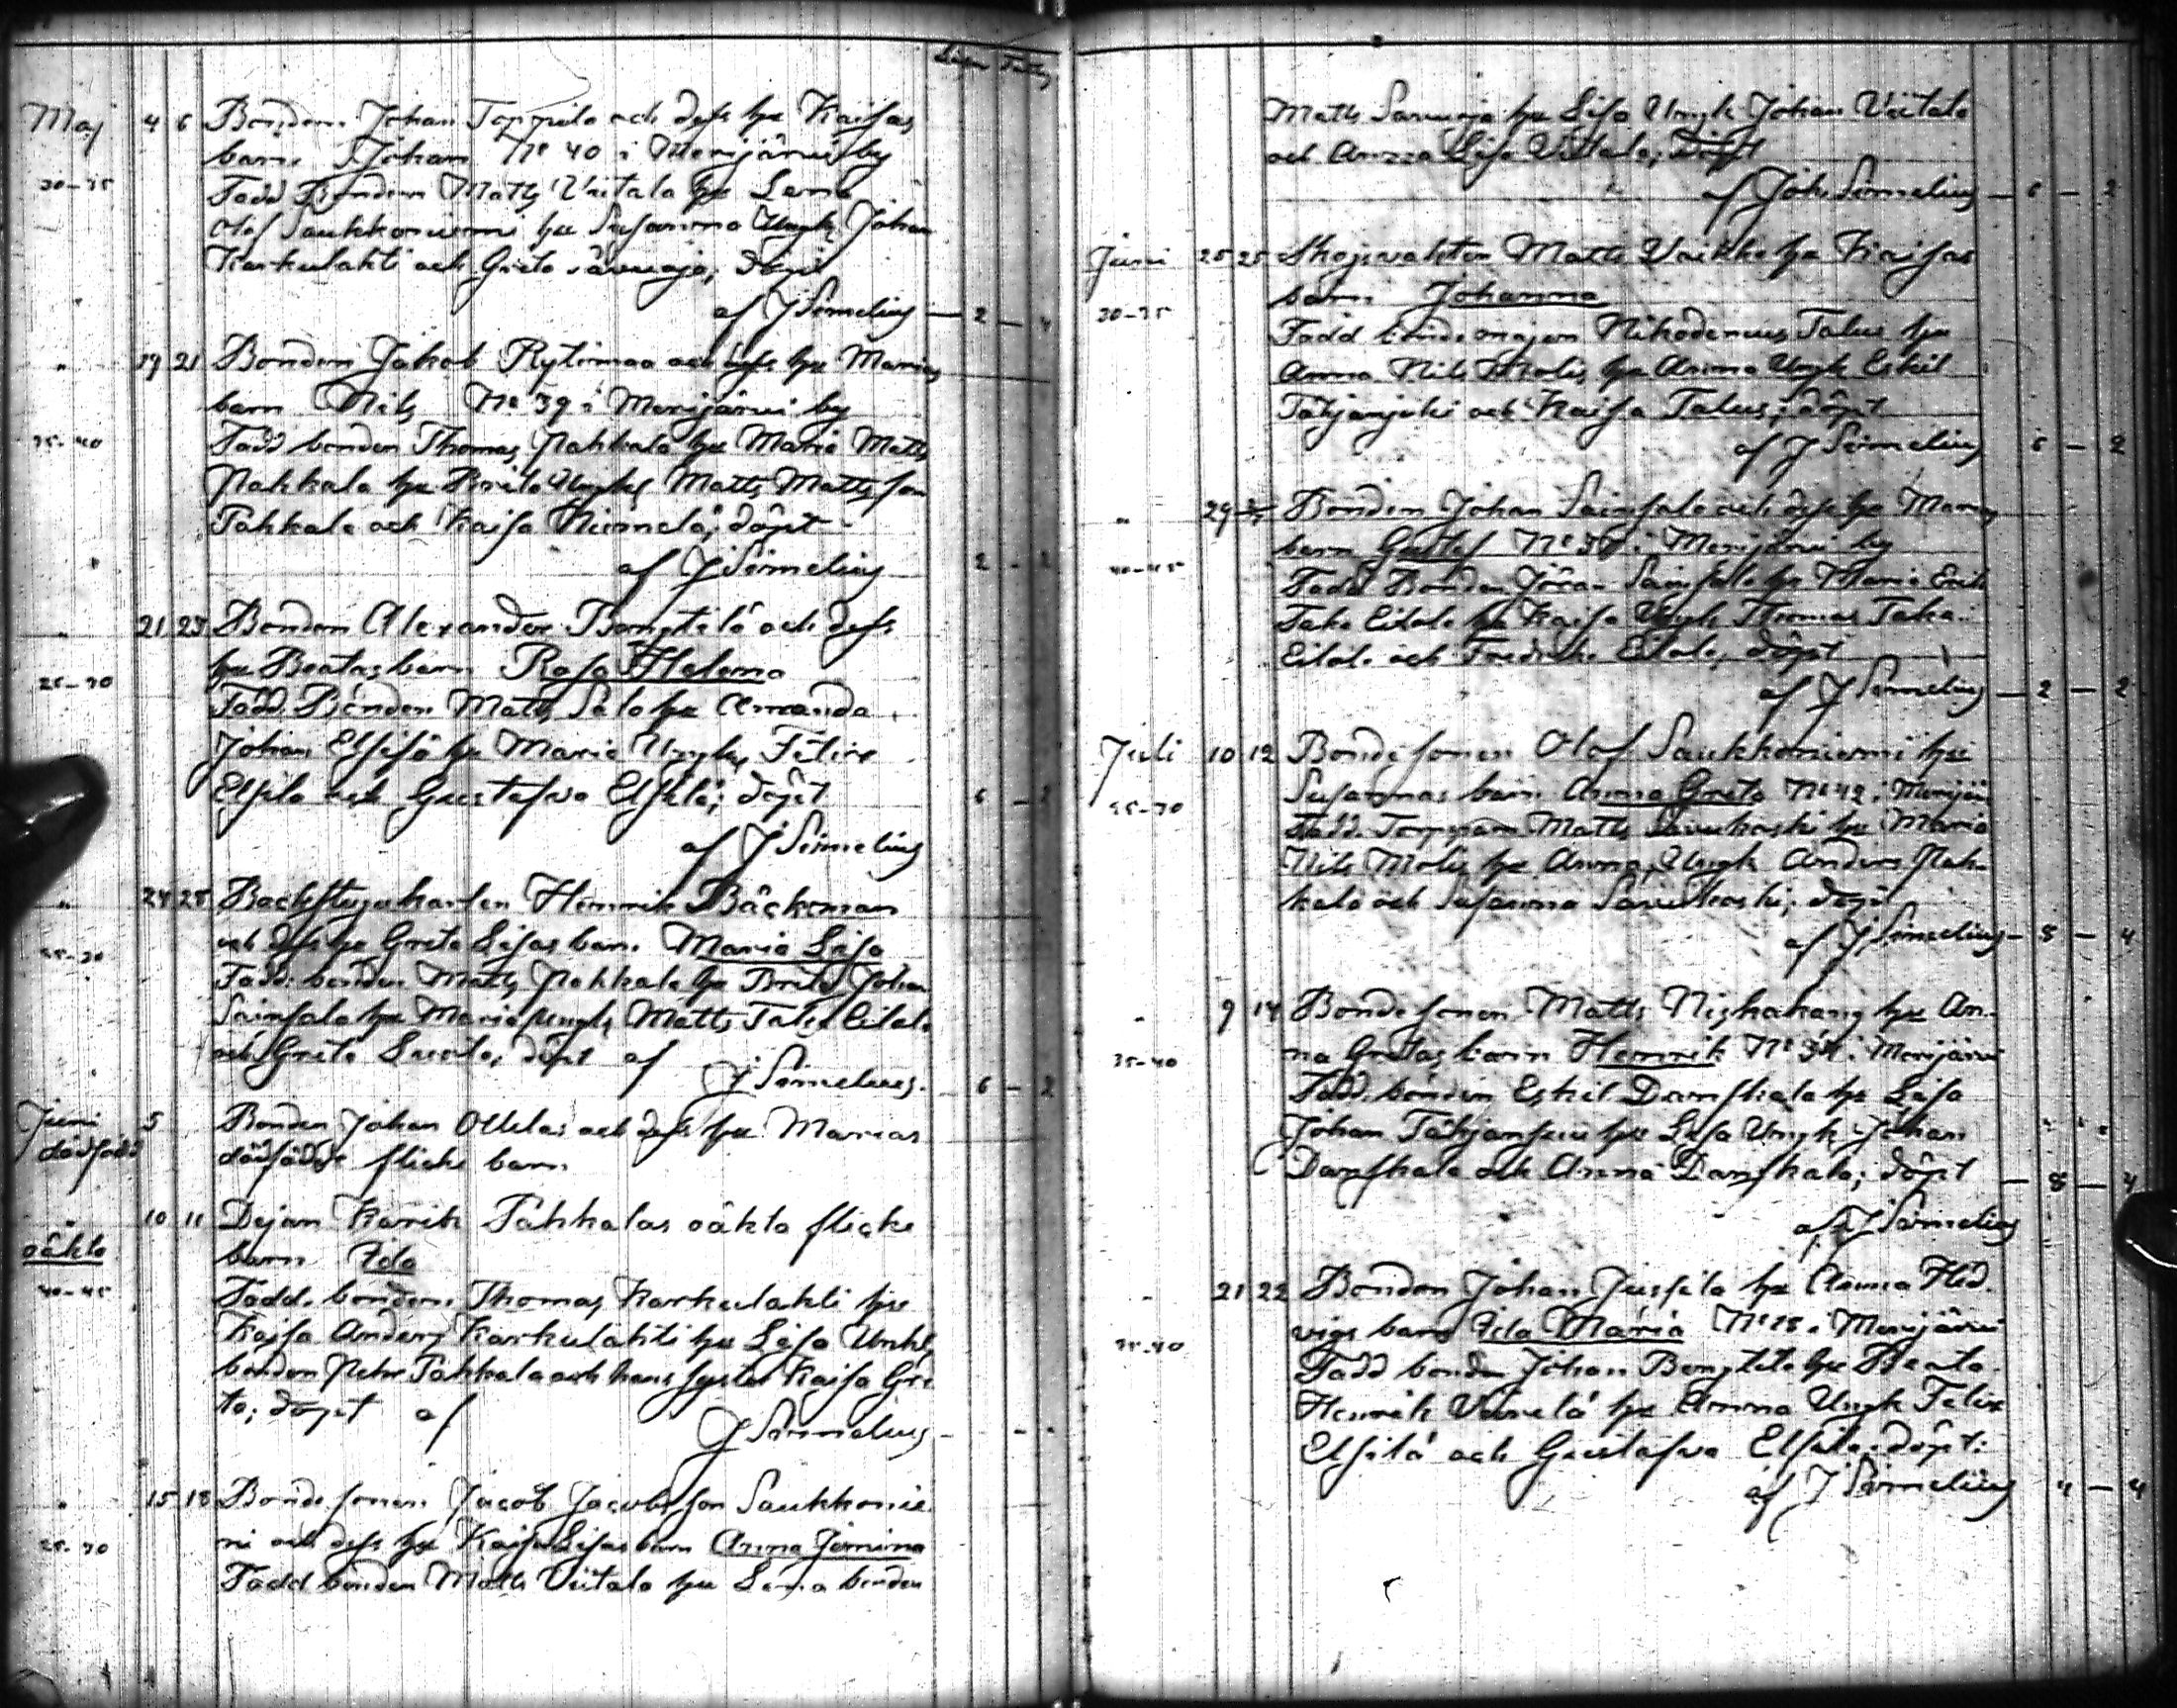 Maj 4 6 Bonden Johan Toppila och dess hu Kaisas
barn Johan No 40 i Merijärvi by
30-35 Fadd Bonden Matts Viitala hu Lena
Olof Saukkoniemi hu Susanna Ungk Johan
Karkulahti och Greta Savuoja; döpt
af J Simelius — 2 — 4
" 19 21 Bonden Jakob Rytimaa och dess hu Marias
barn Nils No 39 i Merijärvi by
35-40 Fadd bonden Thomas Pahkala hu Maria Matts
Pahkala hu Brita Ungk Matts Mattsson
Pahkala och Kaisa Niemelä; döpt
af J Simelius 2 - 2
" 21 23 Bonden Alexander Bengtilä och dess
hu Beatas barn Rosa Helena
25-30 Fadd. Bonden Matts Salo hu Amanda
Johan Elsilä hu Maria Ungk Felix
Elsilä och Gustafva Elsilä; döpt 6 -
af J Simelius
" 24 25 Backstugukarlen Henrik Bäckman
och dess hu Greta Lisas barn Maria Lisa
Fadd: bonden Matts Pahkala hu Brita Johan
Sainsalo hu Maria Ungk Matts Taka Eilola
och Greta döpt af J Simelius. 6 - 2
Juni 5 Bonden Johan Ollilas och dess hu Marias
dödfödd dödfödde flicke barn
" 10 11 Dejan Karik Pahkalas oäkta flicke
oäkta barn Ida
40-45 Fadd. bonden Thomas Karkulahti hu
Kajsa Anders Karkulahti hu Lisa Ungk
bonden Petter Pahkala och hans syster Kaisa Gre
ta; döpt af J Simelius - - -
" 15 18 Bonde sonen Jacob Jacobsson Saukkonie
25-30 mi och dess hu Kaisa Lisas barn Anna
Fadd bonden Matts Viitala hu Lena bonden
Matts Savuoja hu Lisa Ungk Johan Viitala
och Anna Lisa Viitala; döpt
af Joh. Simelius — 6 — 2
Juni 25 25 Skogsvakten Matts Vaikko hu Kaisas
barn Johanna
30-35 Fadd Nikodemus Talus hu
Anna Nils Molis hu Anna Ungk Eskil
Tähjänjoki och Kaisa Talus; döpt
af J Simelius 6 — 2
" 29 Bonden Johan Sainsalo och dess hu Marias
barn Gustaf No i Merijärvi by
40-45 Fadd Bonden Jöran Sainsalo hu Maria Erik
Taka Eilola hu Kaisa Ungk Thomas Taka
Eilola och Fredrika Eilola; döpt
af J Simelius — 2 — 2
Juli 10 12 Bonde sonen Olof Saukkoniemi hu
Susannas barn Anna Greta No 42 i Merijär
Fadd. Torppan Matts Savukoski hu Maria
Nils Molis hu Anna, Ungk Anders Pah
kala och Susanna Savukoski; döpt
af J Simelius — 8 — 4
" 9 14 Bonde sonen Matts Niskakang hu An
na Gretas barn Henrik No i Merijärvi
35-40 Fadd. bonden Eskil Danskala hu Lisa
Johan hu Lisa Ungk Johan
Danskala och Anna Danskala; döpt — 8 — 4
af J Simelius
" 21 22 Bonden Johan Jussila hu Anna Hed
vigs barn Ida Maria No i Merijärvi
35-40 Fadd bonden Johan Bengtilä hu Beata
Henrik hu Anna Ungk Felix
Elsilä och Gustafva Elsilä; döpt:
af J Simelius 4 — 4